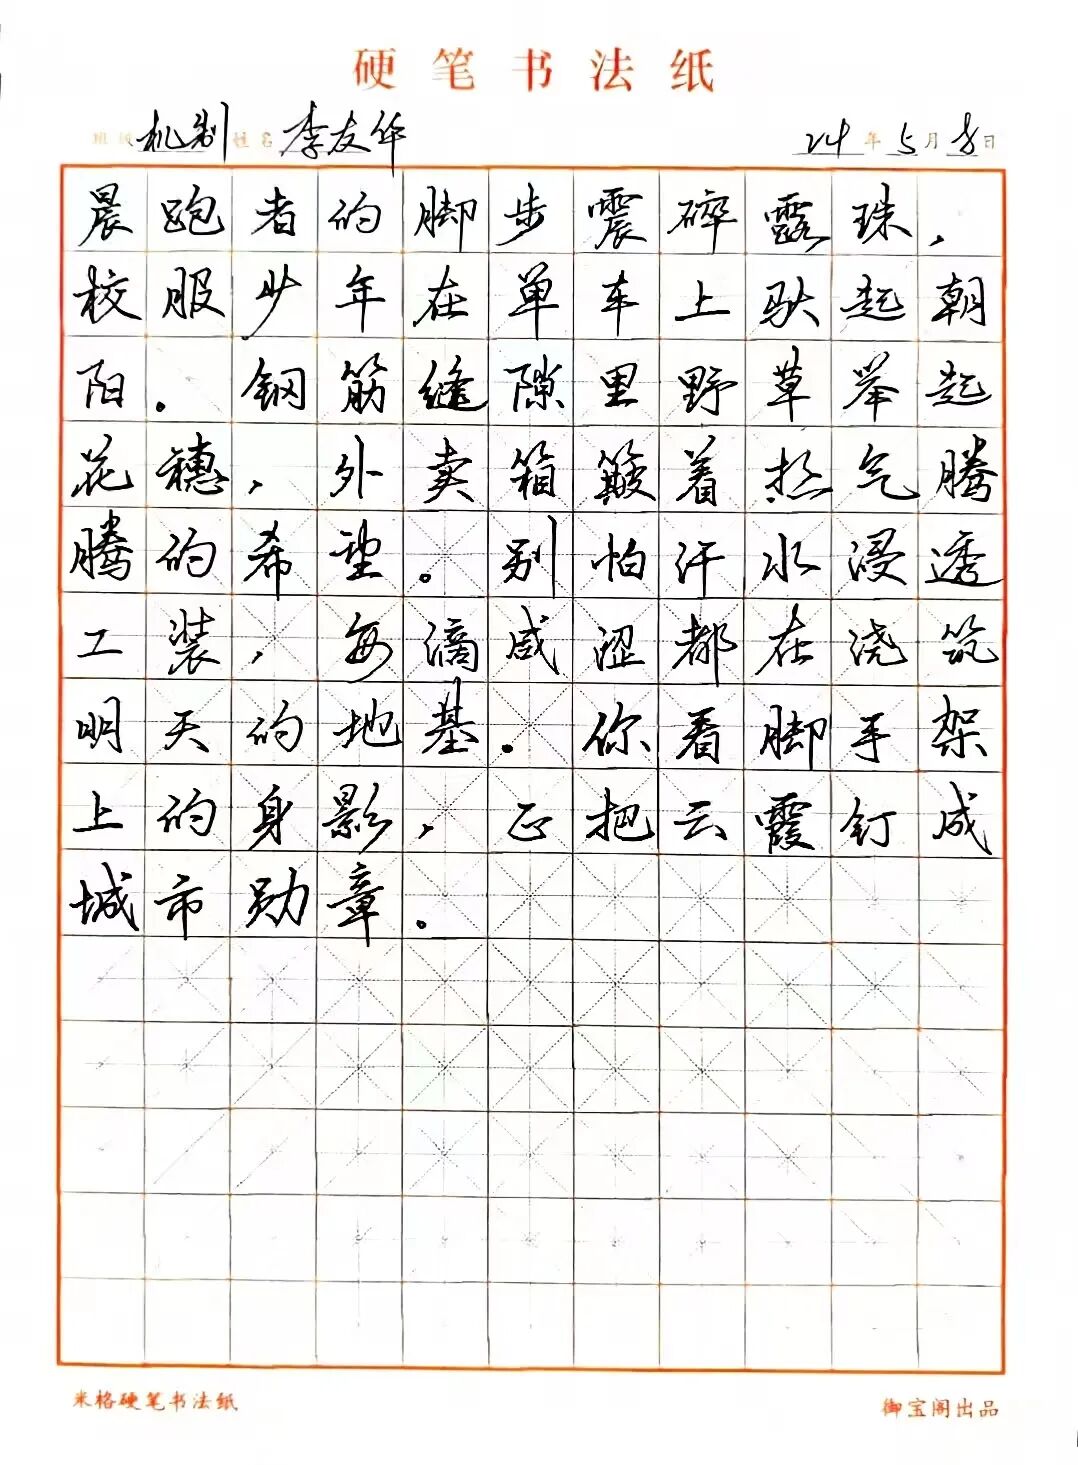 硬笔书法纸
班级 机制 姓名 李友华 24年5月8日
晨跑者的脚步震碎露珠，
校服少年在单车上驮起朝
阳。钢筋缝隙里野草举起
花穗，外卖箱簸着热气腾
腾的希望。别怕汗水浸透
工装，每滴咸涩都在浇筑
明天的地基。你看脚手架
上的身影，正把云霞钉成
城市勋章。
米格硬笔书法纸 御宝阁出品